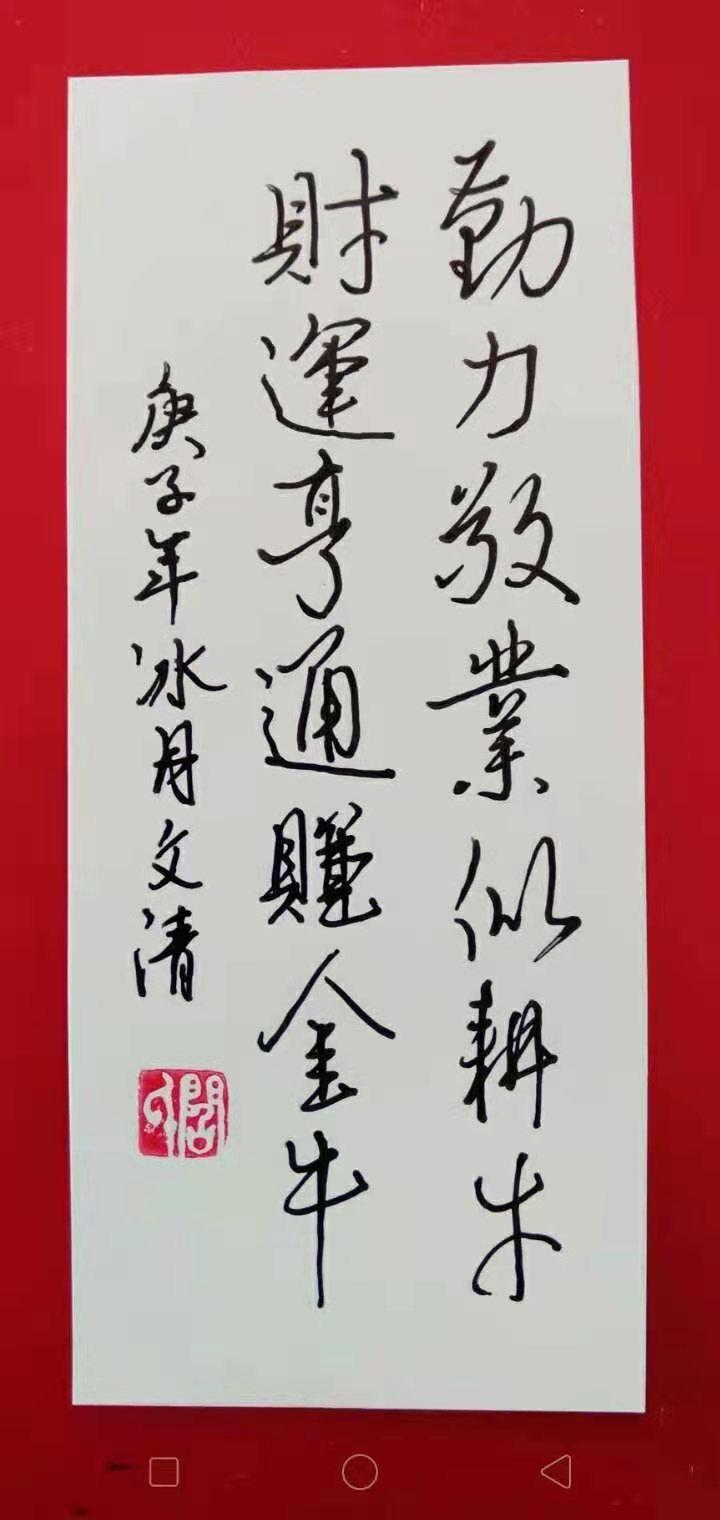 勤力敬業似耕牛
財運亨通賺金牛
庚子年冰月文清